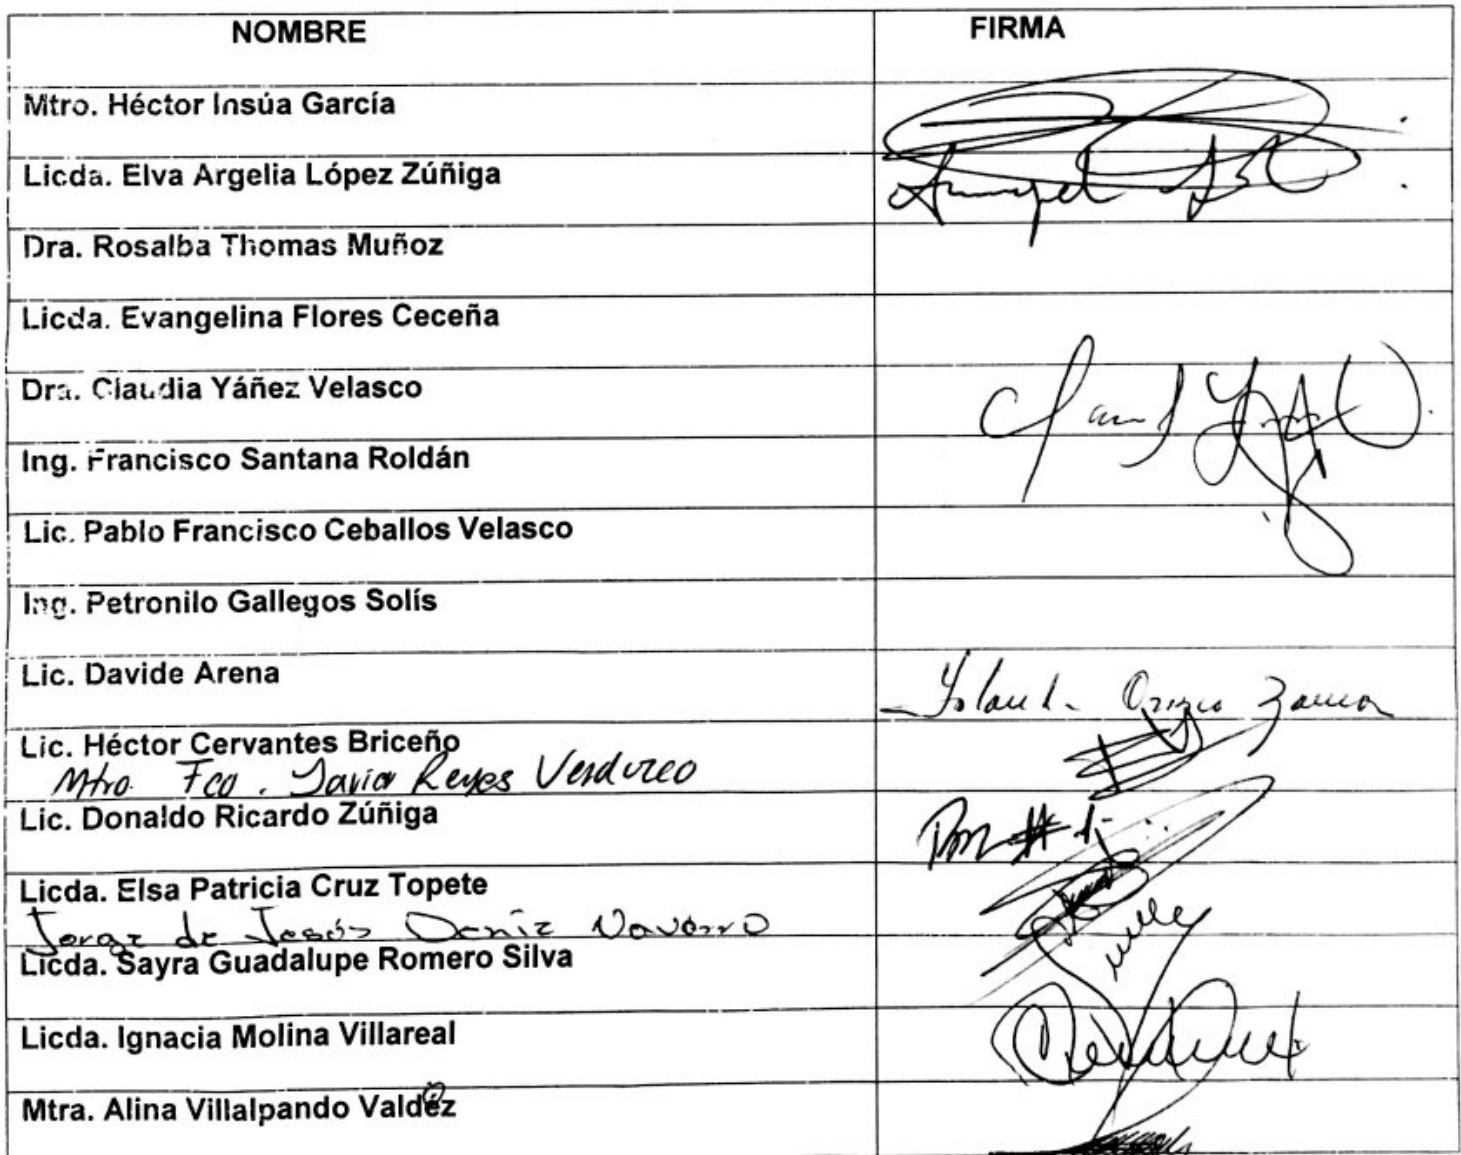 NOMBRE FIRMA
Mtro. Héctor Insúa García
Licda. Elva Argelia López Zúñiga
Dra. Rosalba Thomas Muñoz
Licda. Evangelina Flores Ceceña
Dra. Claudia Yáñez Velasco
Ing. Francisco Santana Roldán
Lic. Pablo Francisco Ceballos Velasco
Ing. Petronilo Gallegos Solís
Lic. Davide Arena
Lic. Héctor Cervantes Briceño
Mtro. Fco. Javier Reyes Verduzco
Lic. Donaldo Ricardo Zúñiga
Licda. Elsa Patricia Cruz Topete
Jorge de Jesús Deniz Navarro
Licda. Sayra Guadalupe Romero Silva
Licda. Ignacia Molina Villareal
Mtra. Alina Villalpando Valdez